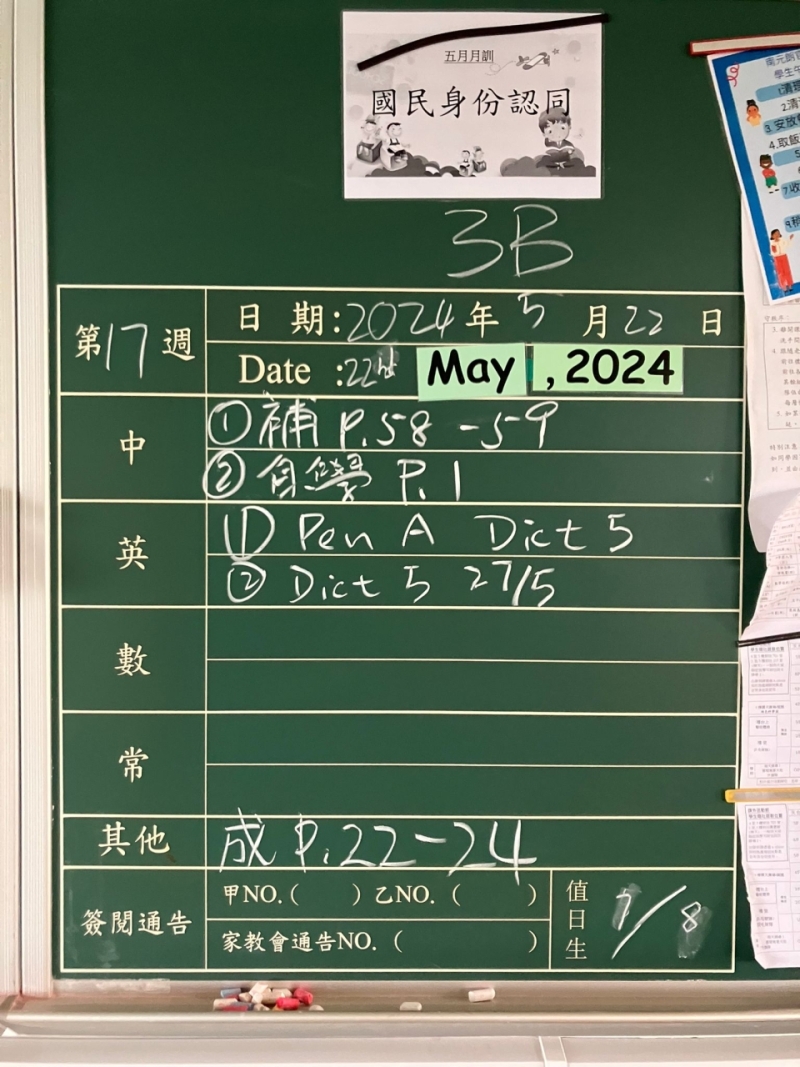 五月月訓
國民身份認同
3B
第17週
日 期:2024年5月22日
Date :22nd May , 2024
中
①補 P.58-59
②自學 P.1
英
① Pen A Dict 5
② Dict 5 27/5
數
常
其他
成 P.22-24
簽閱通告
甲NO.( ) 乙NO.( )
家教會通告NO.( )
值日生
7/8
學生午
2.清
3.安放
4.取飯
5
7.收